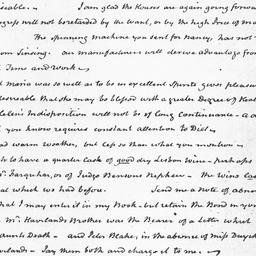 isable. I am glad the Houses are again going forwar
ogress will not be retarded by the want, or by the high Price of Ma
The spinning machine you sent for Nancy, has not
from Sinsing. our manufacturers will derive advantage from
Time and Work
Maria was so well as to be in excellent Spirits gives pleasur
desireable that she may be blessed with a greater Degree of Heal
Indisposition will not be of long Continuance
you know requires constant attention to Diet
had warm weather, but less so than what you mention
to have a quarter Cask of good dry Lisbon Wine perhaps
Mr. Farquhar, or of Judge Bensons Nephew The Wine
al which we had before. Send me a Note of
that I may enter it in my Book but retain the Bond in you
Mr. Havilands Brother was the Bearer of a Letter which
aunts Death and Peter Blake, in the absence of miss Duyck
Pay them both and charge it to me.